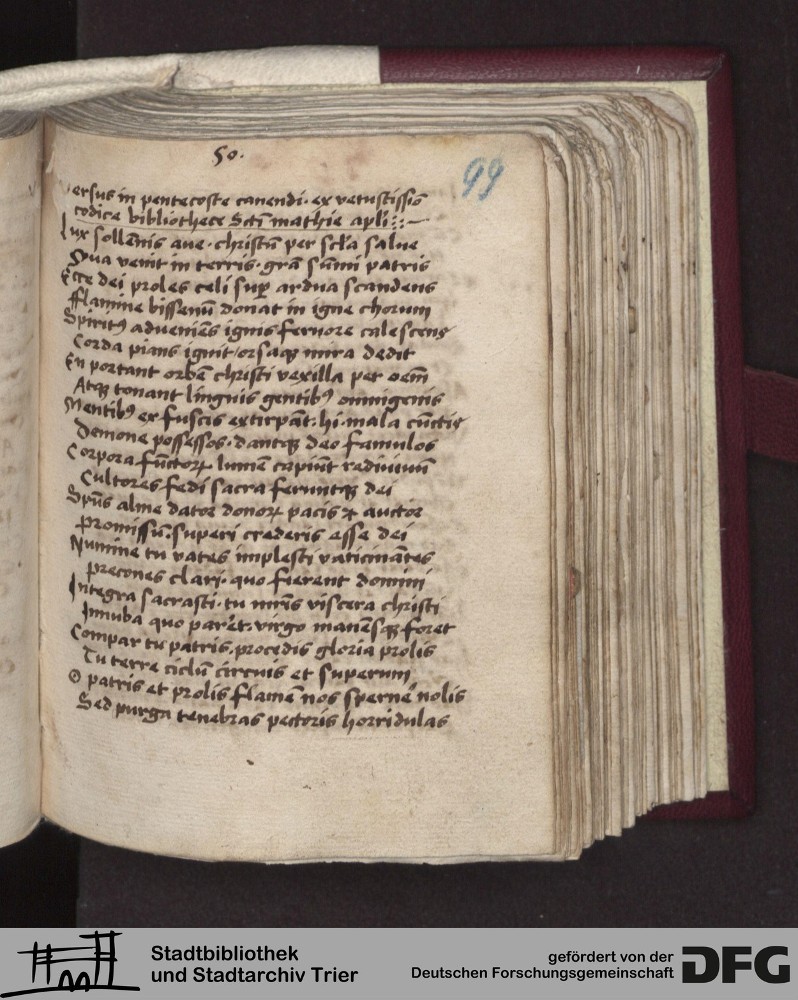 50.
99
ersus in pentecoste canendi. ex vetustissiō
codice bibliothece Scti mathie apli
Lux sollēnis aue. christū per scła salue
Qua venit in terris. grā sūmi patris
Ecce dei proles celi sup ardua scandens
Flamine bissenū donat in igne chorum
Spiritꝰ adueniēs ignis feruore calescens
Corda pians ignit orsaqꝫ mira dedit
En portant orbē christi vexilla per oēm
Atqꝫ tonant linguis gentibꝰ omnigenis
Mentibꝰ ex fuscis extirpāt. hi mala cūctis
Demone possessos. dantqꝫ deo famulos
Corpora fūctoꝝ lumē capiūt rediuiuū
Cultores fedi sacra feruntqꝫ dei
Spūs alme dator donoꝝ pacis et auctor
Promissū. superi crederis esse dei
Numine tu vates implesti vaticināntes
Precones clari. quo fierent domini
Integra sacrasti. tu mris viscera christi
Innuba quo paret. virgo manēsqꝫ foret
Compar tu patris. procedis gloria prolis
Tu terre ciclū circuis et superum
O patris et prolis flamē nos sperne nolis
Sed purga tenebras pectoris horridulas
Stadtbibliothek
und Stadtarchiv Trier
gefördert von der
Deutschen Forschungsgemeinschaft
DFG